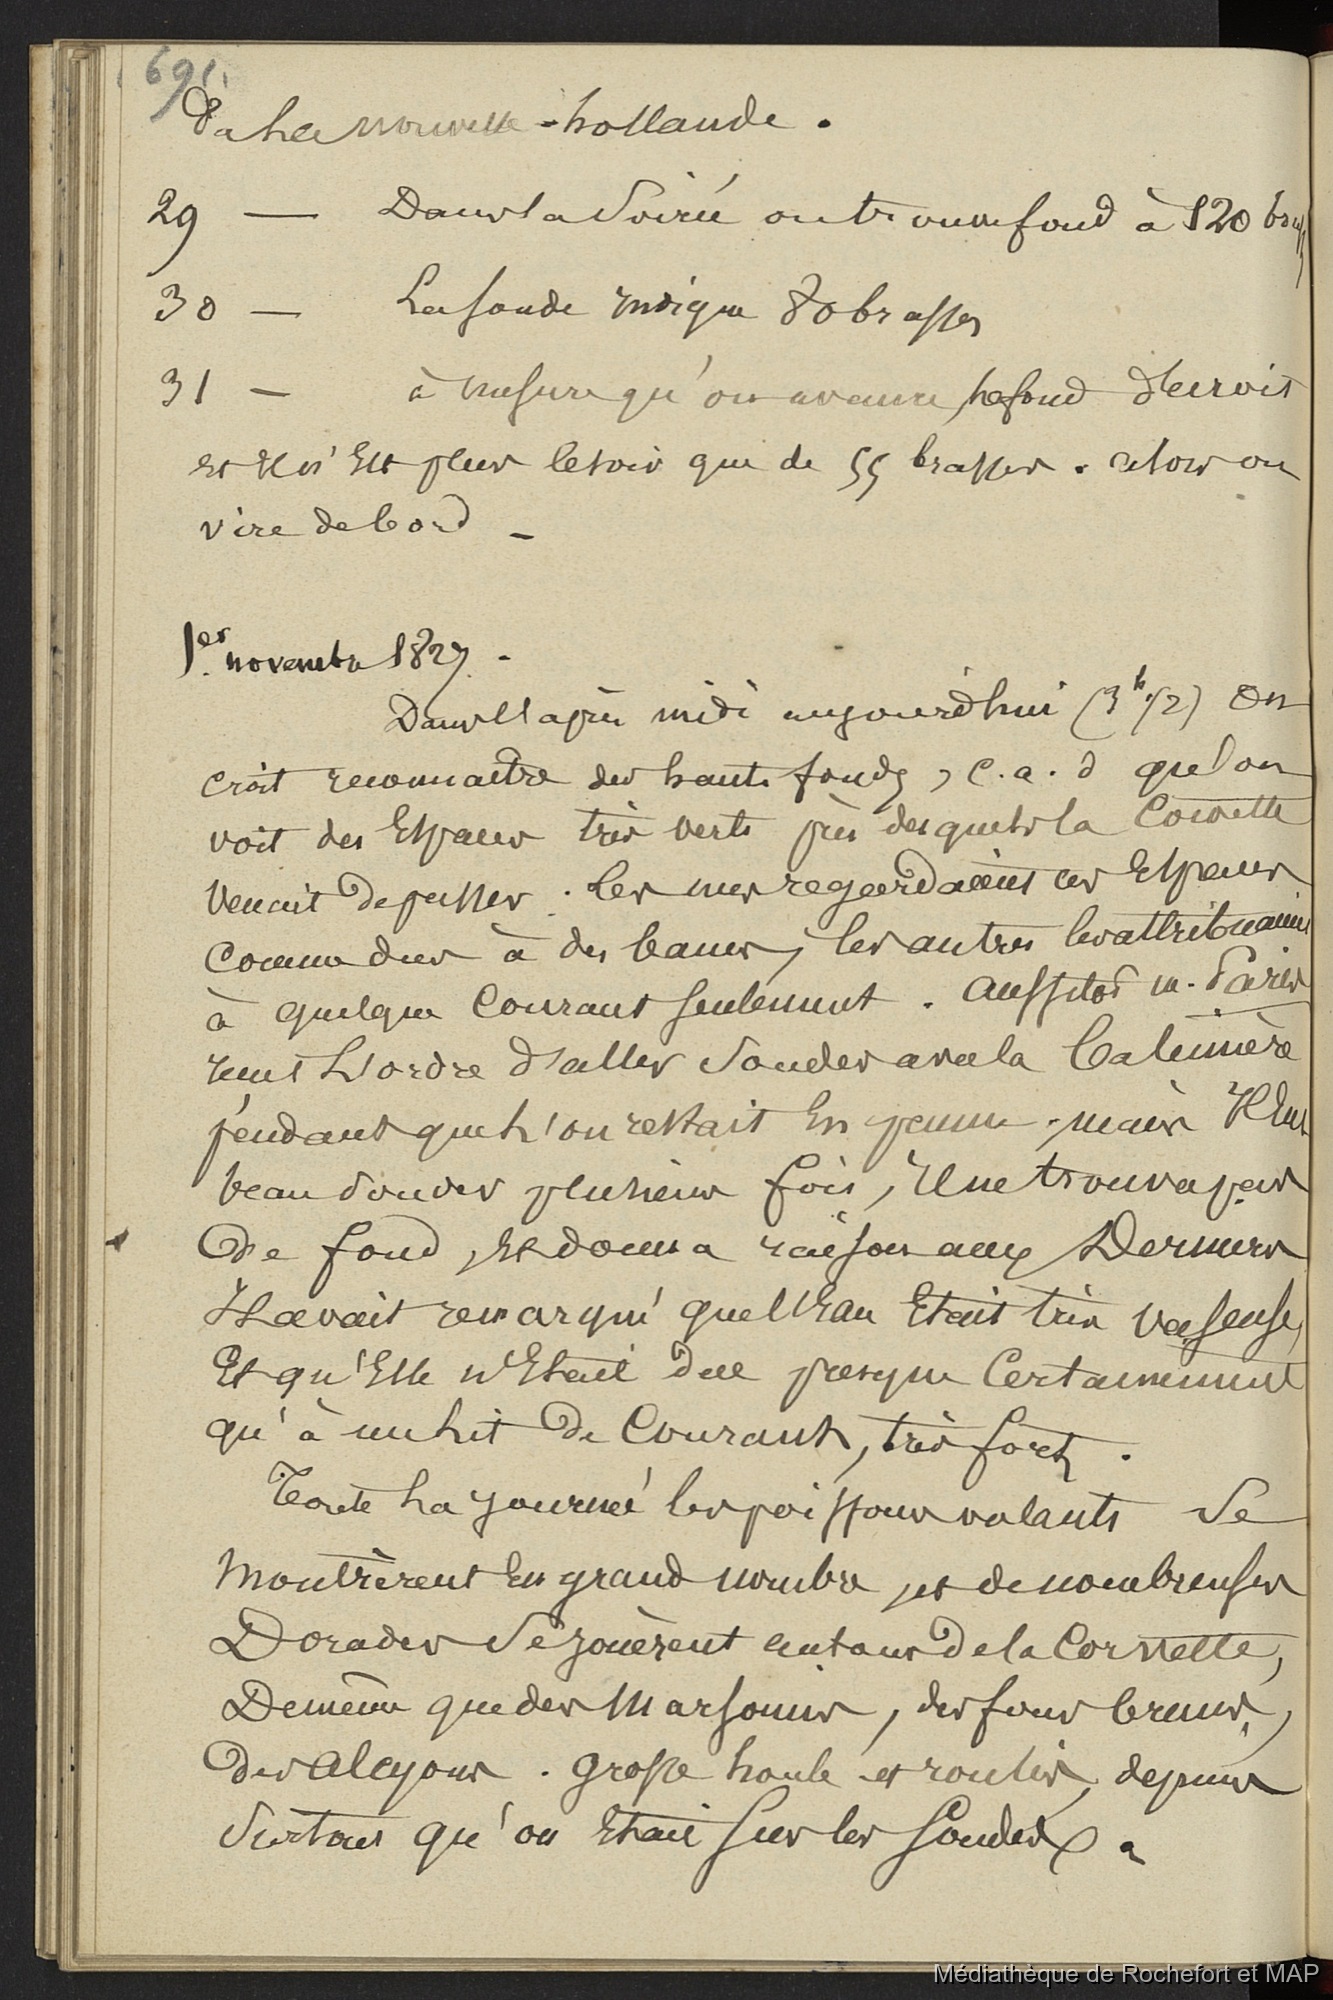 691.
De la nouvelle-hollande.
29 — Dans la Soirée on trouve fond à 120 brass
30 — La sonde indique 80 brasses
31 — à mesure qu'on avance, le fond décroit
et il n'est plus le soir que de 55 brasses. alors on
vire de bord —
1er. novembre 1827. -
Dans l'après midi aujourd'hui (3h 1/2) on
croit reconnaitre des hauts fonds, c.a.d que l'on
voit des Espaces très verts près desquels la Corvette
Venait de passer. les uns regardaient ces Espaces
comme dus à des bancs, les autres les attribuaient
à quelque Courant seulement. Aussitot m. Paris
reçut l'ordre d'aller sonder avec la baleinière
pendant que l'on restait En panne. mais Il eut
beau sonder plusieurs fois, Il ne trouva pas
de fond, et donna raison aux Derniers
Il avait remarqué que l'Eau Etait très vaseuse,
Et qu'Elle n'Etait due presque Certainement
qu'à un lit de Courants, très forts.
Toute la journée les poissons volants se
montrèrent En grand nombre, et de nombreuses
Dorades se jouèrent autour de la Corvette,
De même que des Marsouins, des fous bruns,
des alcyons. grosse houle et roulis, depuis
surtout qu'on Etait sur les sondes.
Médiathèque de Rochefort et MAP